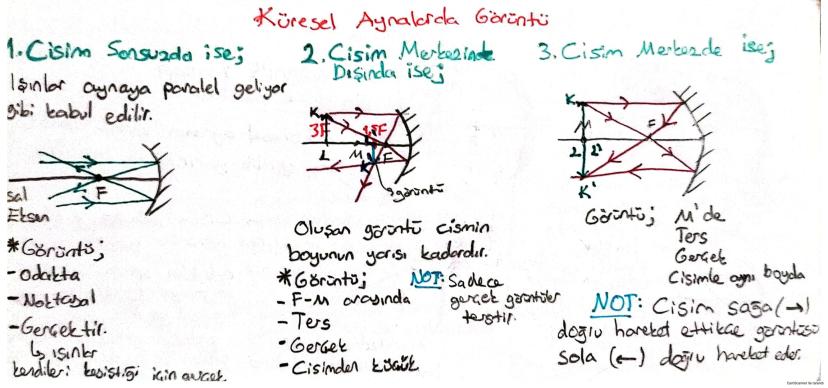 Küresel Aynalarda Görüntü
1. Cisim Sonsuzda ise;
Işınlar aynaya paralel geliyor
gibi kabul edilir.
F
sal
Eksen
*Görüntü;
- Odakta
- Noktasal
- Gerçektir.
↳ ışınlar
kendileri kesiştiği için gerçek
2. Cisim Merkezinde
Dışında ise;
K
3F
1,5F
L
M
F
K'
görüntü
Oluşan görüntü cismin
boyunun yarısı kadardır.
*Görüntü;
- F-M arasında
- Ters
- Gerçek
- Cisimden küçük
NOT: Sadece
gerçek görüntüler
terstir.
3. Cisim Merkezde ise;
K
M
F
L
L'
K'
Görüntü; M'de
Ters
Gerçek
Cisimle aynı boyda
NOT: Cisim sağa (→)
doğru hareket ettikçe görüntüsü
sola (←) doğru hareket eder.